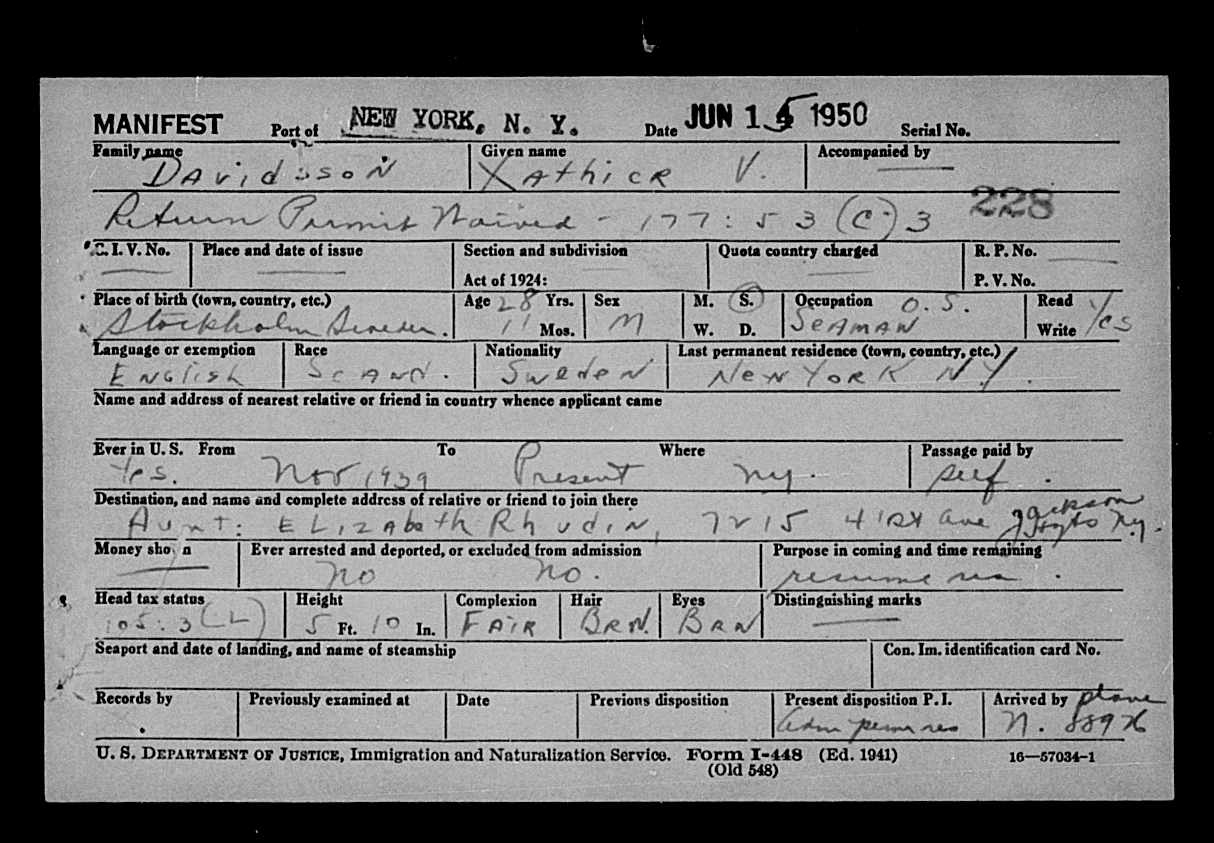 MANIFEST Port of NEW YORK, N. Y. Date JUN 15 1950 Serial No.
Family name Given name Accompanied by
Davidsson Xathick V.
Return Permit Waived - 177:53 (C-) 3 228
C. I. V. No. Place and date of issue Section and subdivision Quota country charged R. P. No.
Act of 1924: P. V. No.
Place of birth (town, country, etc.) Age 28 Yrs. Sex M. S. Occupation O.S. Read Yes
Stockholm Sweden. 11 Mos. M W. D. SEAMAN Write
Language or exemption Race Nationality Last permanent residence (town, country, etc.)
English Scand. Sweden New York N.Y.
Name and address of nearest relative or friend in country whence applicant came
Ever in U. S. From To Where Passage paid by
Yes. Nov 1939 Present ny. self.
Destination, and name and complete address of relative or friend to join there
Aunt: Elizabeth Rhudin, 7215 41st ave Jackson Hgts Ny.
Money shown Ever arrested and deported, or excluded from admission Purpose in coming and time remaining
no no. resume res.
Head tax status Height Complexion Hair Eyes Distinguishing marks
105:3 (L) 5 Ft. 10 In. FAIR BRN. BRN
Seaport and date of landing, and name of steamship Con. Im. identification card No.
Records by Previously examined at Date Previous disposition Present disposition P. I. Arrived by plane
adm perm res N.
U. S. DEPARTMENT OF JUSTICE, Immigration and Naturalization Service. Form I-448 (Ed. 1941) 16—57034-1
(Old 548)